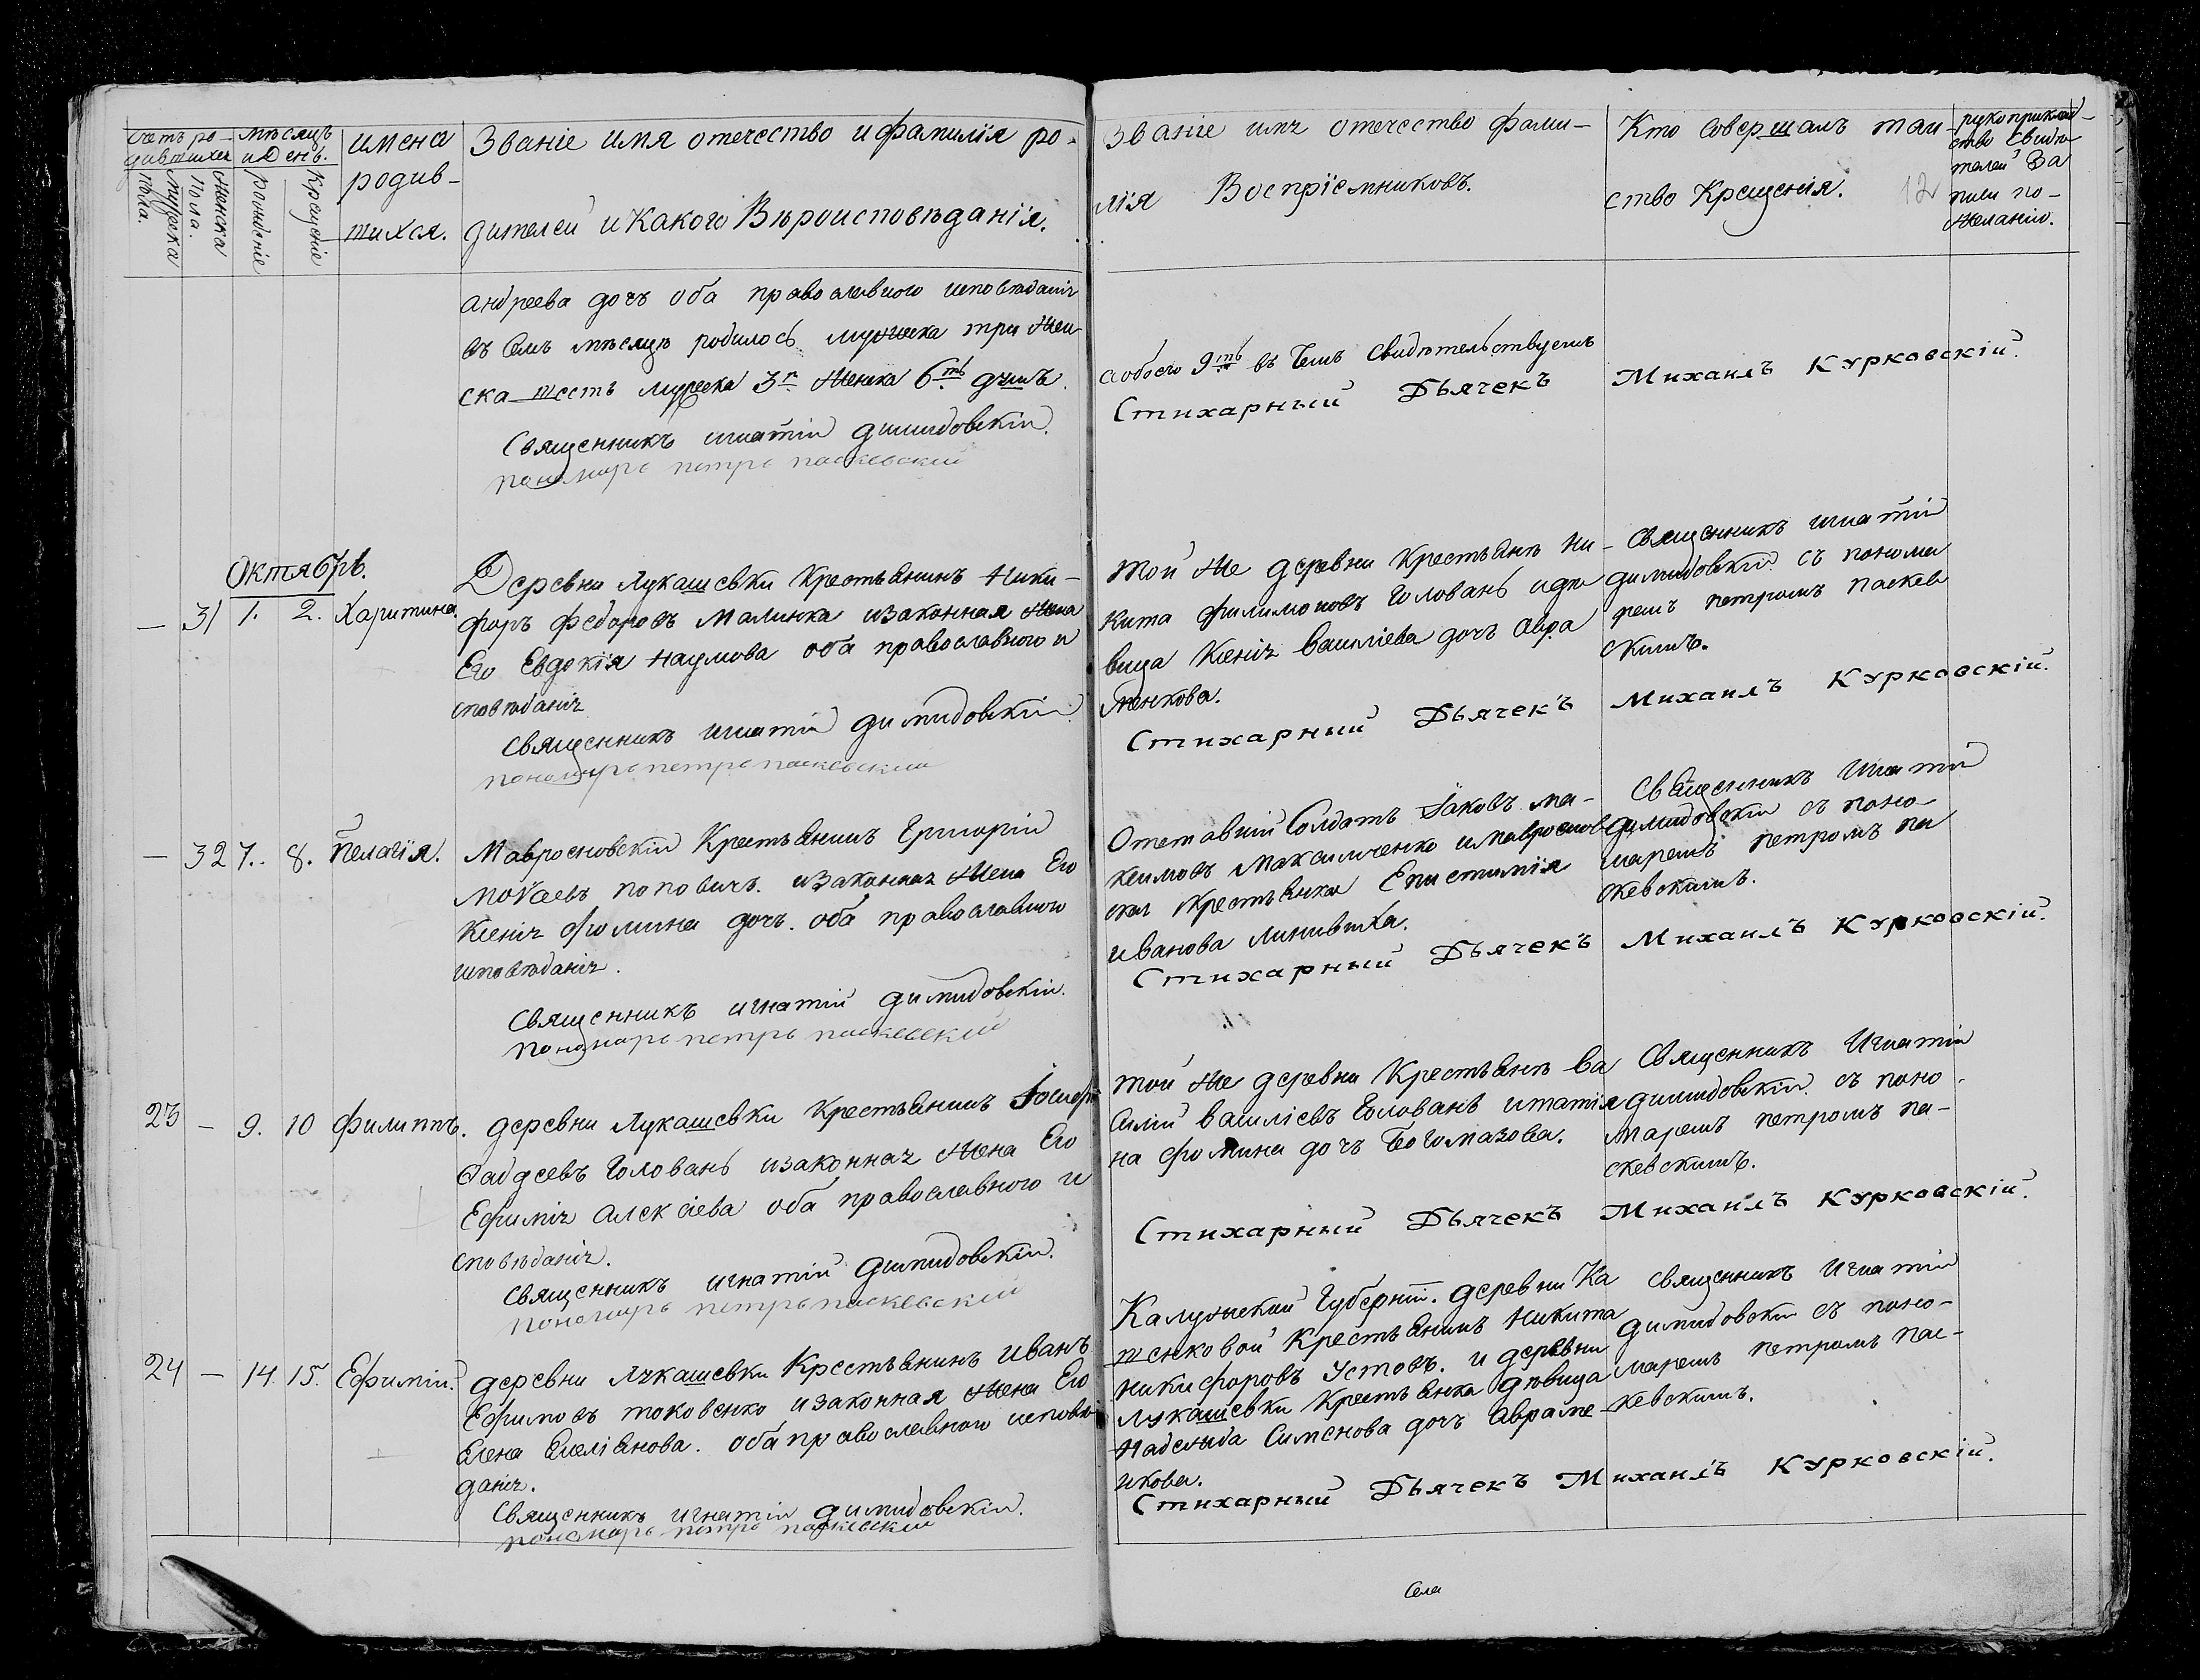 Счетъ ро-
дившихся
Мужеска
пола.
Женска
пола.
мѣсяцъ
и День.
рожденіе
Крещеніе
имена
родив-
шихся.
Званіе имя отечество и фамилія ро-
дителей и Какого Вѣроисповѣданія.
Званіе имя отечество фами-
лія Воспріемниковъ.
Кто Совершалъ таи-
ство Крещенія.
12
рукоприклад-
ство Свидѣ
телей За
писи по-
желанію.
андреева дочь оба православного исповѣданія
въ Семъ мѣсяцѣ родилось мужеска три Жен
ска шесть мужеска 3 Женска 6ть душъ.
Священникъ игнатій димидовскій.
пономарь петръ паскевский
а обоего 9ть въ Чемъ Свидѣтельствуемъ
Стихарный Дьячекъ Михаилъ Курковскій.
Октябрь.
— 31 1. 2. Харитина.
Деревни Лукашевки Крестьянинъ Ники-
форъ Федоровъ Малинка изаконная жена
Его Евдокія Наумова оба православного и
сповѣданія
Священникъ игнатій димидовскій.
пономарь петръ паскевский
той же деревни Крестьянъ Ни-
кита филимоновъ Головань идѣ
вица Ксенія василіева дочь Авра
менкова.
Стихарный Дьячекъ Михаилъ Курковскій.
Священникъ игнатій
димидовскій съ понома
ремъ петромъ паскев
скимъ.
— 32 7. 8. Пелагія.
Мавросновскій Крестьянинъ Григорій
Мокаевъ поповичъ. изаконная жена Его
Ксенія фомина дочь. оба православного
исповѣданія.
Священникъ игнатій димидовскій.
пономарь петръ паскевский
Отставній Солдатъ Іаковъ ма-
ксимовъ Максимченко имавроснов
ская Крестьянка Епистимія
иванова линивиха.
Стихарный Дьячекъ Михаилъ Курковскій.
Священникъ Игнатій
димидовскій съ поно-
маремъ петромъ па
скевскимъ.
23 — 9. 10 филиппъ.
деревни Лукашевки Крестьянинъ Іосифъ
Фадеевъ Головань изаконная жена Его
Ефимія алексіева оба православного и
сповѣданія.
Священникъ игнатій димидовскій.
пономарь петръ паскевский
той же деревни Крестьянъ Ва
силій василіевъ Головань итатія
на фомина дочь Богомазова.
Стихарный Дьячекъ Михаилъ Курковскій.
Священникъ Игнатій
димидовскій съ поно
маремъ петромъ па-
скевскимъ.
24 — 14. 15. Ефимій.
деревни Лукашевки Крестьянинъ иванъ
Ефимовъ токовенко изаконная жена Его
Елена Емеліянова. оба православного исповѣ
данія.
Священникъ игнатій димидовскій.
пономарь петръ паскевский
Калужской Губерніи. деревни Ка
шенковой Крестьянинъ Никита
никифоровъ Устовъ. и деревни
лукашевки Крестьянка дѣвица
Надежда Симёнова дочь Авраме
нкова.
Стихарный Дьячекъ Михаилъ Курковскій.
Священникъ Игнатій
димидовскій съ поно-
маремъ петромъ пас-
кевскимъ.
Села